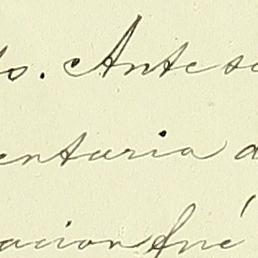 to. Antes
entaria a
acion fué